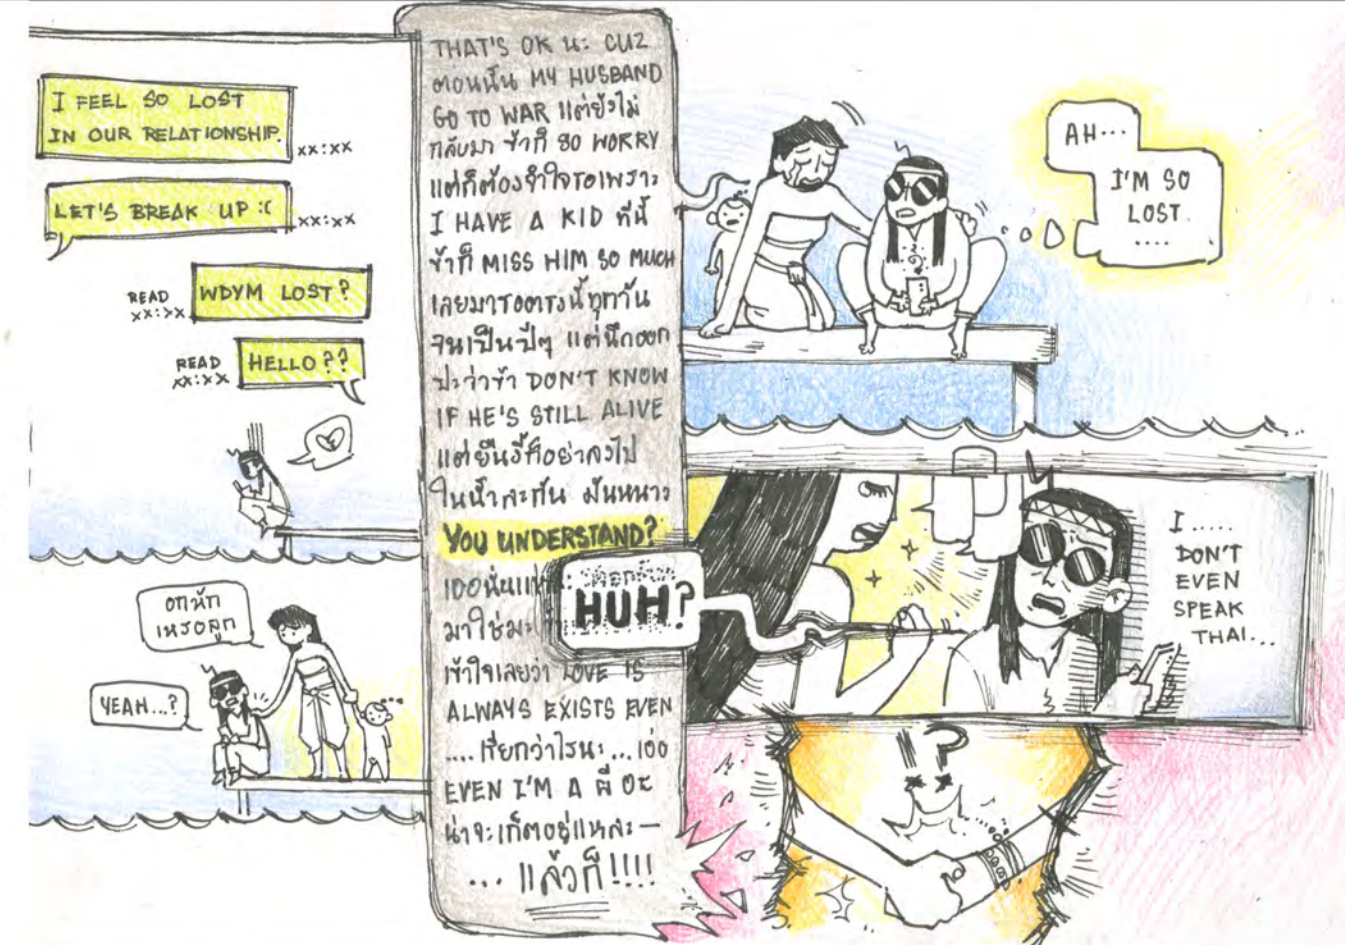 I FEEL SO LOST
IN OUR RELATIONSHIP.
xx:xx
LET'S BREAK UP :(
xx:xx
READ
xx:xx
WDYM LOST?
READ
xx:xx
HELLO??
อกหัก
เหรอลูก
YEAH...?
THAT'S OK นะ CUZ
ตอนนั้น MY HUSBAND
GO TO WAR แต่ยังไม่
กลับมา ข้าก็ SO WORRY
แต่ก็ต้องจำใจรอเพราะ
I HAVE A KID ทีนี้
ข้าก็ MISS HIM SO MUCH
เลยมารอตรงนี้ทุกวัน
จนเป็นปีๆ แต่นึกออก
ปะว่าข้า DON'T KNOW
IF HE'S STILL ALIVE
แต่ยืนงี้ก็อย่าลงไป
ในน้ำละกัน มันหนาว
YOU UNDERSTAND?
เออนั่นแหละ
HUH?
มาใช่มะ
เข้าใจเลยว่า LOVE IS
ALWAYS EXISTS EVEN
.... เรียกว่าไรนะ ... เออ
EVEN I'M A ผี อะ
น่าจะเก็ตอยู่แหละ —
... แล้วก็!!!!
AH...
I'M SO
LOST.
....
I.....
DON'T
EVEN
SPEAK
THAI...
!?